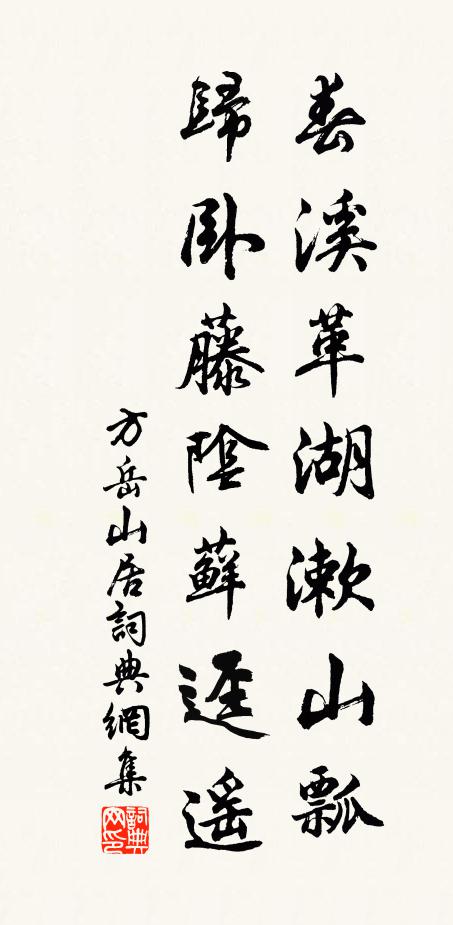 春溪革湖漱山瓢
歸臥藤陰蘚逕遙
方岳山居詞典網集
詞典網印